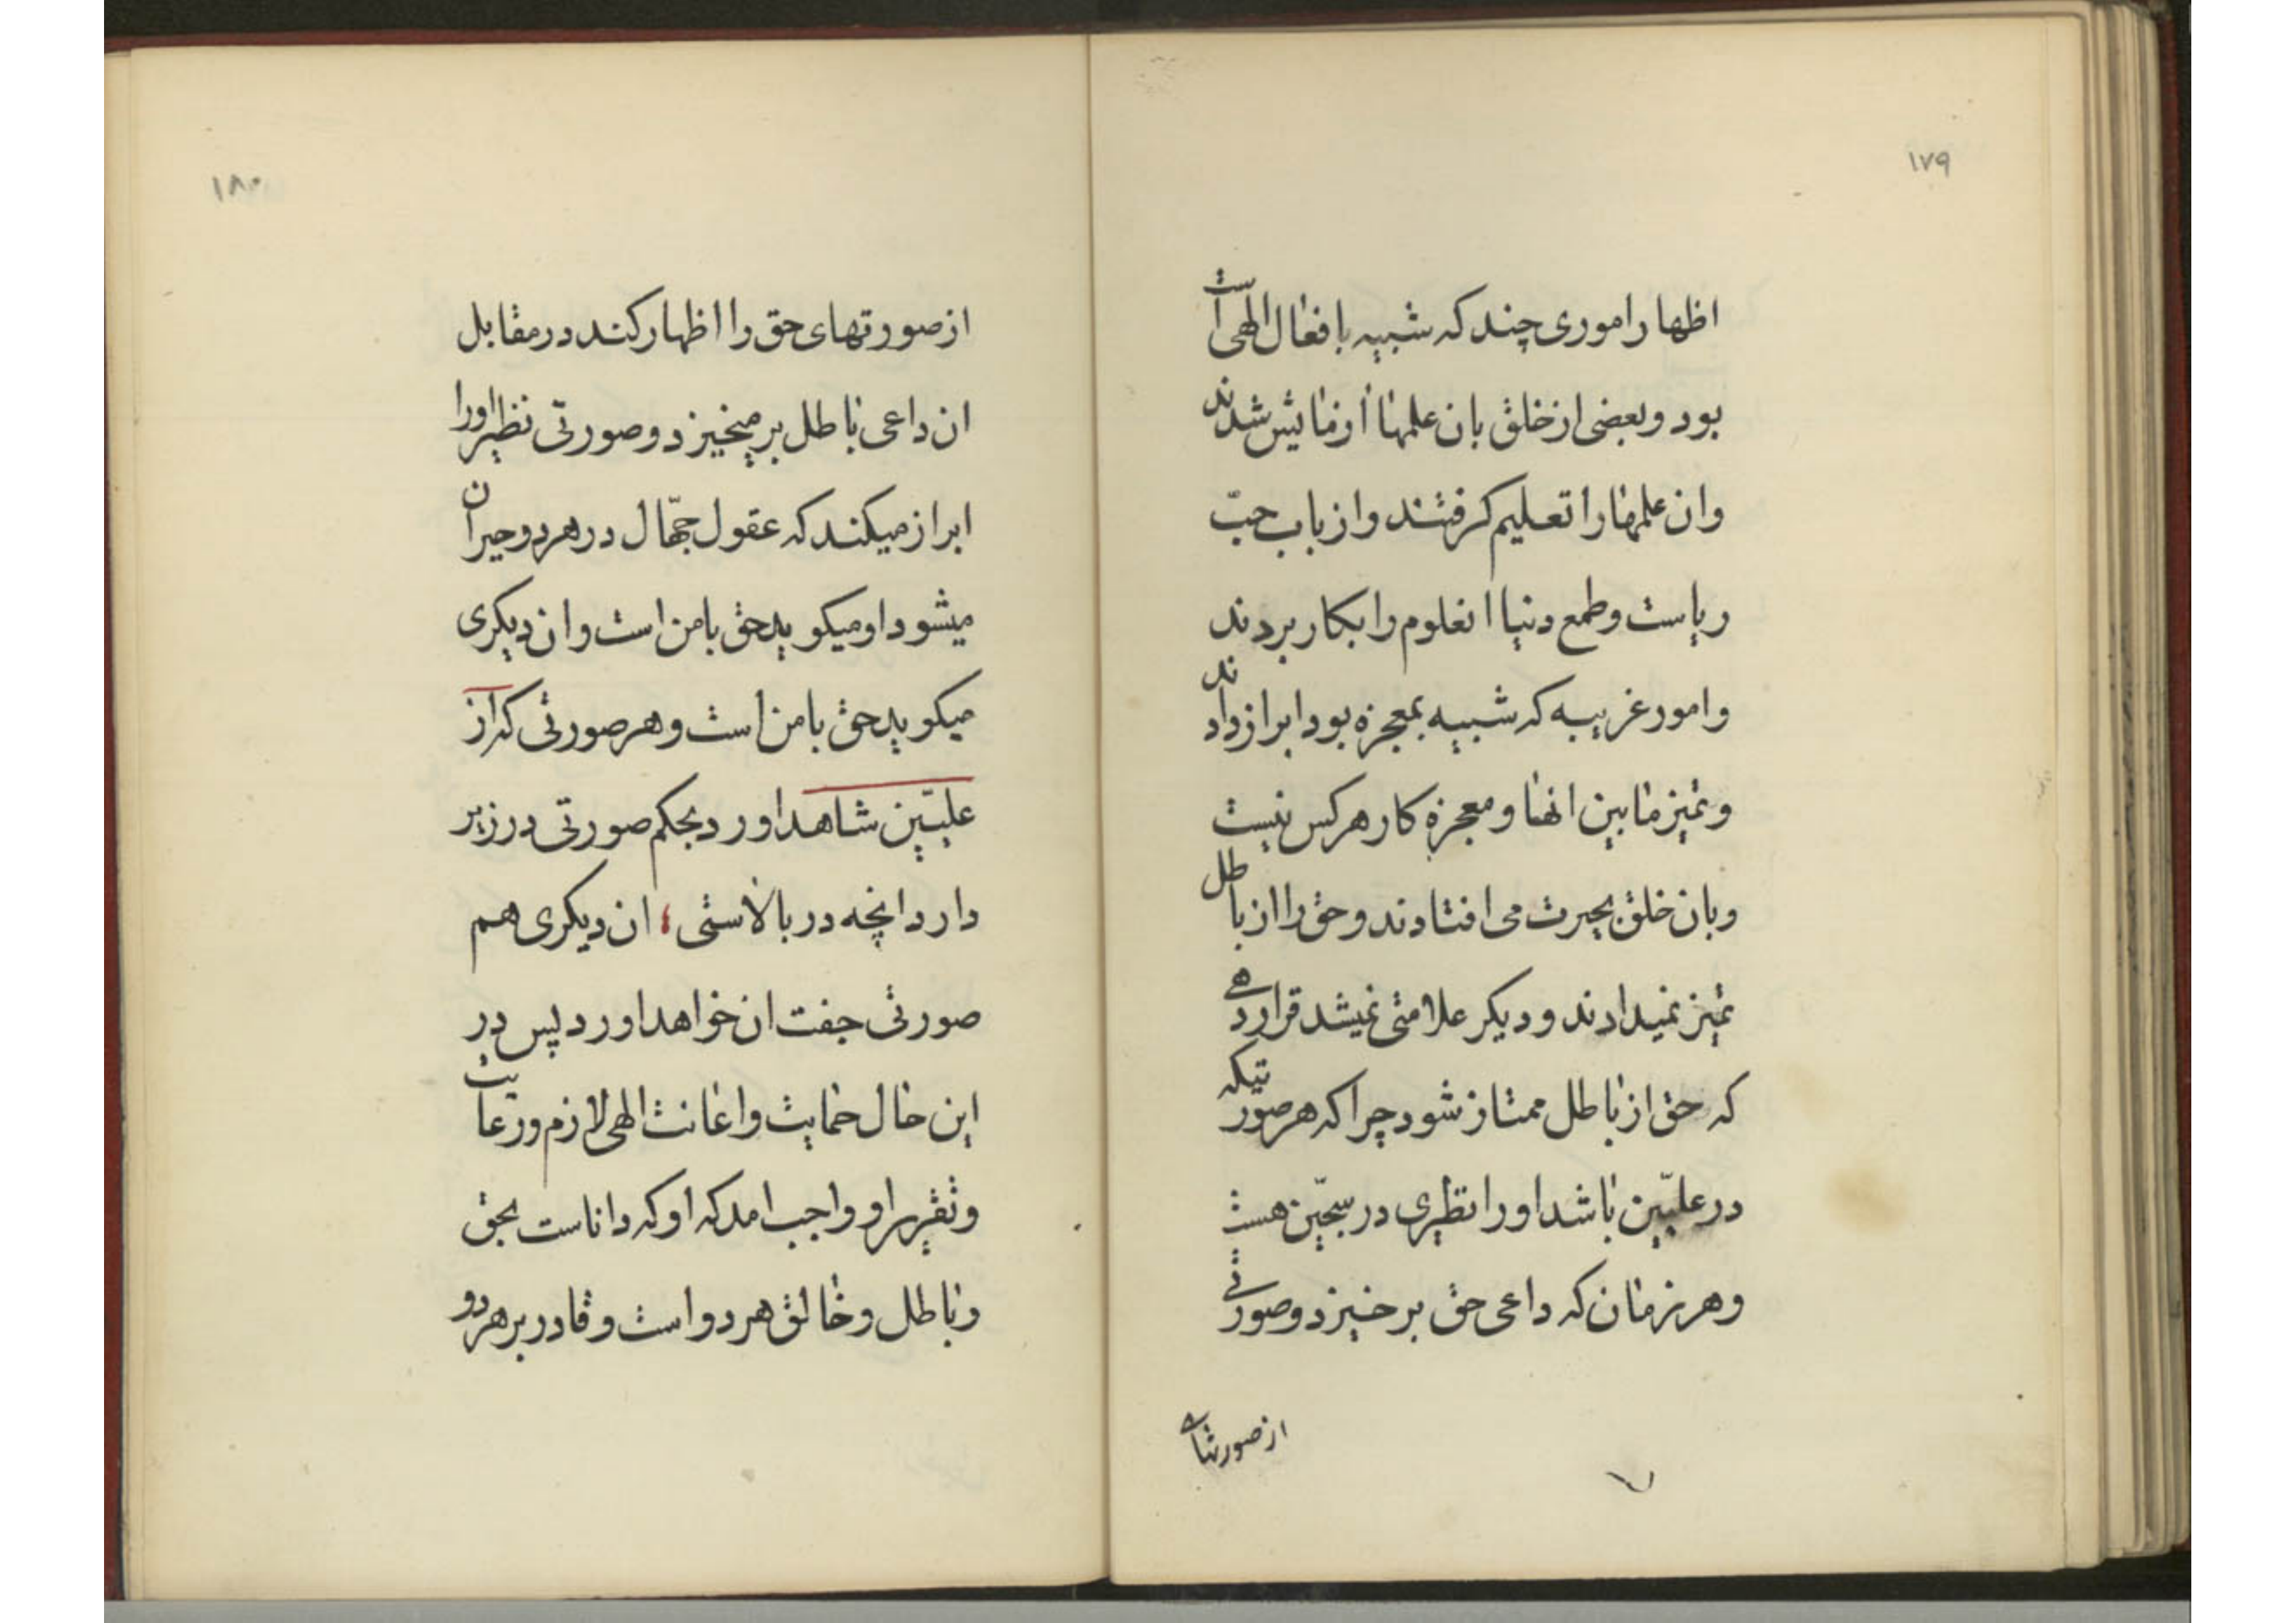 ۱۷۹
اظهار اموری چند که شبیه بافعال الهی است
بود و بعضی از خلق بان علمها ازمایش شدند
وان علمها را تعلیم کرفتند و از باب حبّ
ریاست و طمع دنیا انعلوم را بکار بردند
وامور غریبه که شبیه بمعجزه بود ابراز دادند
و تمیز مابین انها و معجزه کار هرکس نیست
وبان خلق بحیرت می افتادند و حق را از باطل
تمیز نمیدادند و دیکر علامتی نمیشد قرار دهی
که حق از باطل ممتاز شود چرا که هر صورتیکه
در علیّین باشد او را نظیری در سجّین هست
و هر زمان که داعی حق بر خیزد و صورتی
از صورتهای
۷
۱۸۰
از صورتهای حق را اظهار کند در مقابل
ان داعی باطل بر میخیزد و صورتی نظیر اورا
ابراز میکند که عقول جهّال در هر دو حیران
میشود او میکوید حق بامن است وان دیکری
میکوید حق بامن است و هر صورتی که از
علیّین شاهد اورد بحکم صورتی در زیر
دارد انچه در بالاستی ؛ ان دیکری هم
صورتی جفت ان خواهد اورد پس در
این حال حمایت و اعانت الهی لازم و رعایت
و تقریر او واجب امد که او که داناست بحق
و باطل و خالق هر دو است و قادر بر هر دو